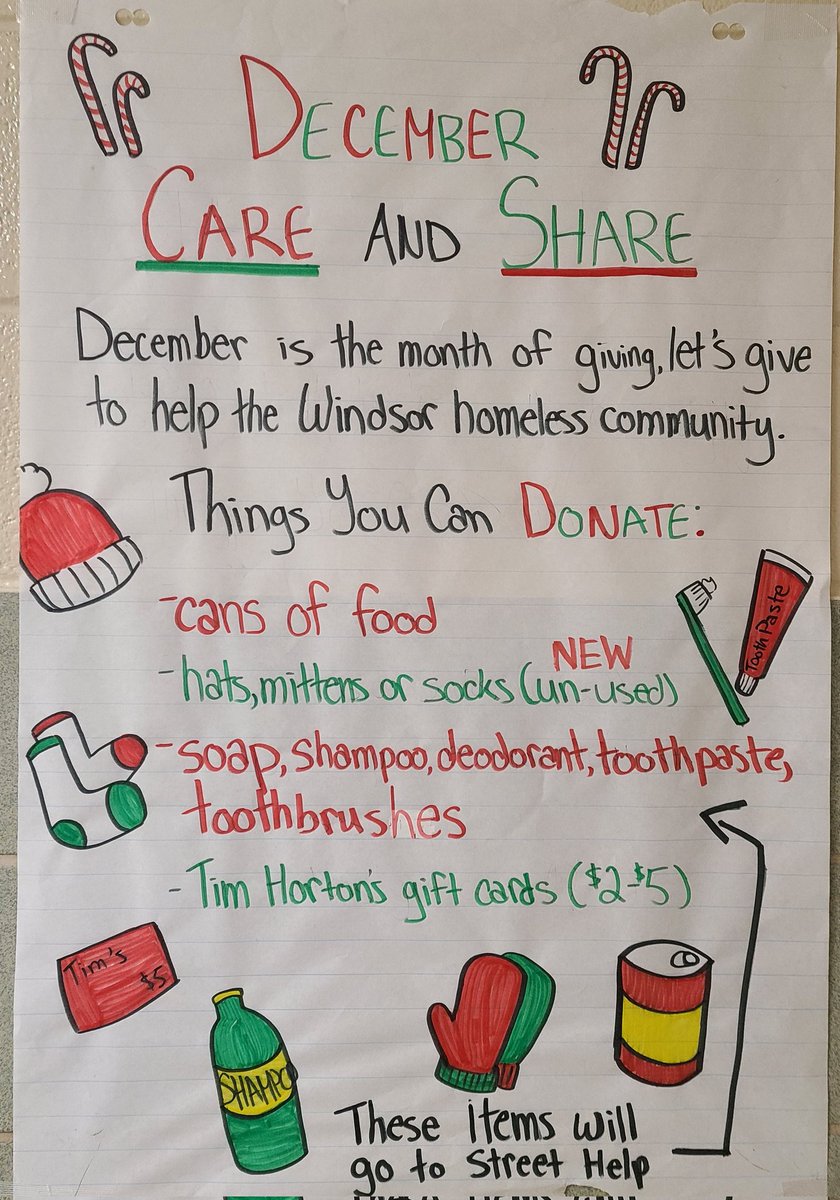 DECEMBER
CARE AND SHARE
December is the month of giving, let's give
to help the Windsor homeless community.
Things You Can DONATE:
-cans of food
NEW
-hats, mittens or socks (un-used)
Tooth Paste
-soap, shampoo, deodorant, toothpaste,
toothbrushes
-Tim Horton's gift cards ($2-$5)
Tim's
$5
SHAMPO
These Items will
go to Street Help